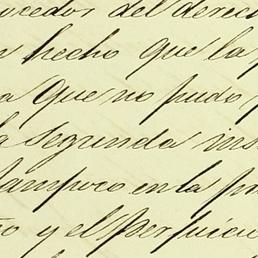 ucedos del derec
n hecho que la p
a que no pudo
la segunda ins
tampoco en la pr
o y el perjuici